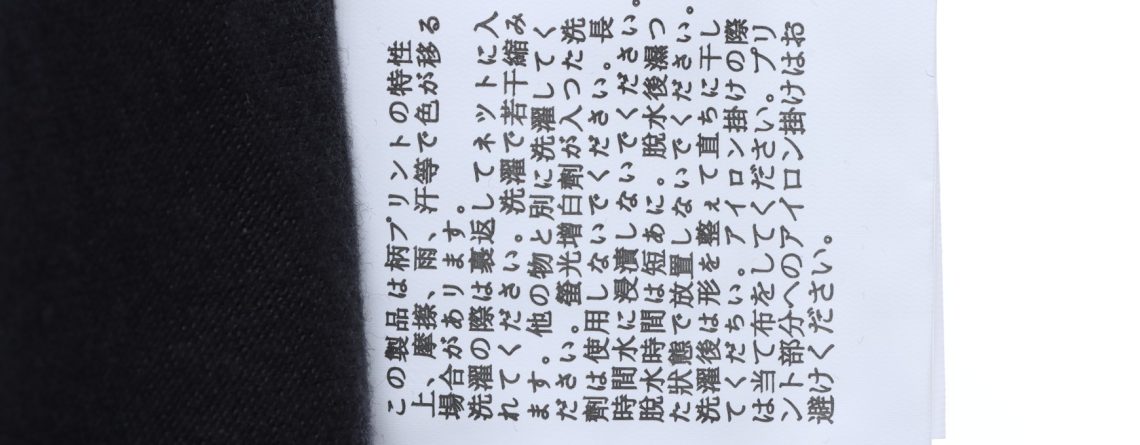 この製品は柄プリントの特性
上、摩擦、雨、汗等で色が移る
場合があります。
洗濯の際は裏返してネットに入
れてください。洗濯で若干縮み
ます。他の物と別に洗濯してく
ださい。螢光増白劑が入つた洗
劑は使用しないでください。長
時間水に浸漬しないでください。
脱水時間は短あに。脱水後濕つ
た狀態で放置しないでください。
洗濯後は形を整ぇて直ちに干し
てくだちい。アイロン掛けの際
は当て布をしてください。プリ
ント部分へのアイロン掛けはお
避けください。